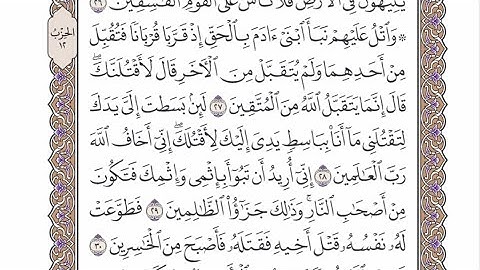 يَتِيهُونَ فِي ٱلۡأَرۡضِۚ فَلَا تَأۡسَ عَلَى ٱلۡقَوۡمِ ٱلۡفَٰسِقِينَ ٢٦
۞ وَٱتۡلُ عَلَيۡهِمۡ نَبَأَ ٱبۡنَيۡ ءَادَمَ بِٱلۡحَقِّ إِذۡ قَرَّبَا قُرۡبَانٗا فَتُقُبِّلَ
مِنۡ أَحَدِهِمَا وَلَمۡ يُتَقَبَّلۡ مِنَ ٱلۡأٓخَرِ قَالَ لَأَقۡتُلَنَّكَۖ
قَالَ إِنَّمَا يَتَقَبَّلُ ٱللَّهُ مِنَ ٱلۡمُتَّقِينَ ٢٧ لَئِنۢ بَسَطتَ إِلَيَّ يَدَكَ
لِتَقۡتُلَنِي مَآ أَنَا۠ بِبَاسِطٖ يَدِيَ إِلَيۡكَ لِأَقۡتُلَكَۖ إِنِّيٓ أَخَافُ ٱللَّهَ
رَبَّ ٱلۡعَٰلَمِينَ ٢٨ إِنِّيٓ أُرِيدُ أَن تَبُوٓأَ بِإِثۡمِي وَإِثۡمِكَ فَتَكُونَ
مِنۡ أَصۡحَٰبِ ٱلنَّارِۚ وَذَٰلِكَ جَزَٰٓؤُاْ ٱلظَّٰلِمِينَ ٢٩ فَطَوَّعَتۡ
لَهُۥ نَفۡسُهُۥ قَتۡلَ أَخِيهِ فَقَتَلَهُۥ فَأَصۡبَحَ مِنَ ٱلۡخَٰسِرِينَ ٣٠
الحِزْبُ
١٢